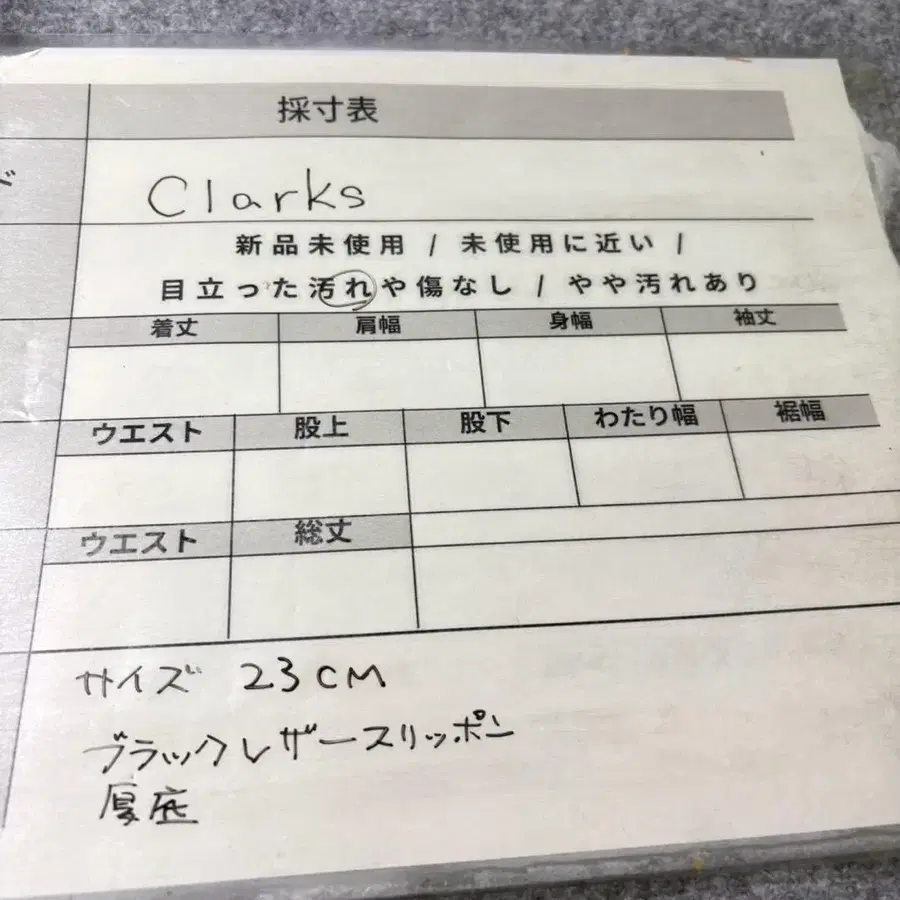 採寸表
ド
Clarks
新品未使用 / 未使用に近い /
目立った汚れや傷なし / やや汚れあり
着丈 肩幅 身幅 袖丈
ウエスト 股上 股下 わたり幅 裾幅
ウエスト 総丈
サイズ 23CM
ブラックレザースリッポン
厚底